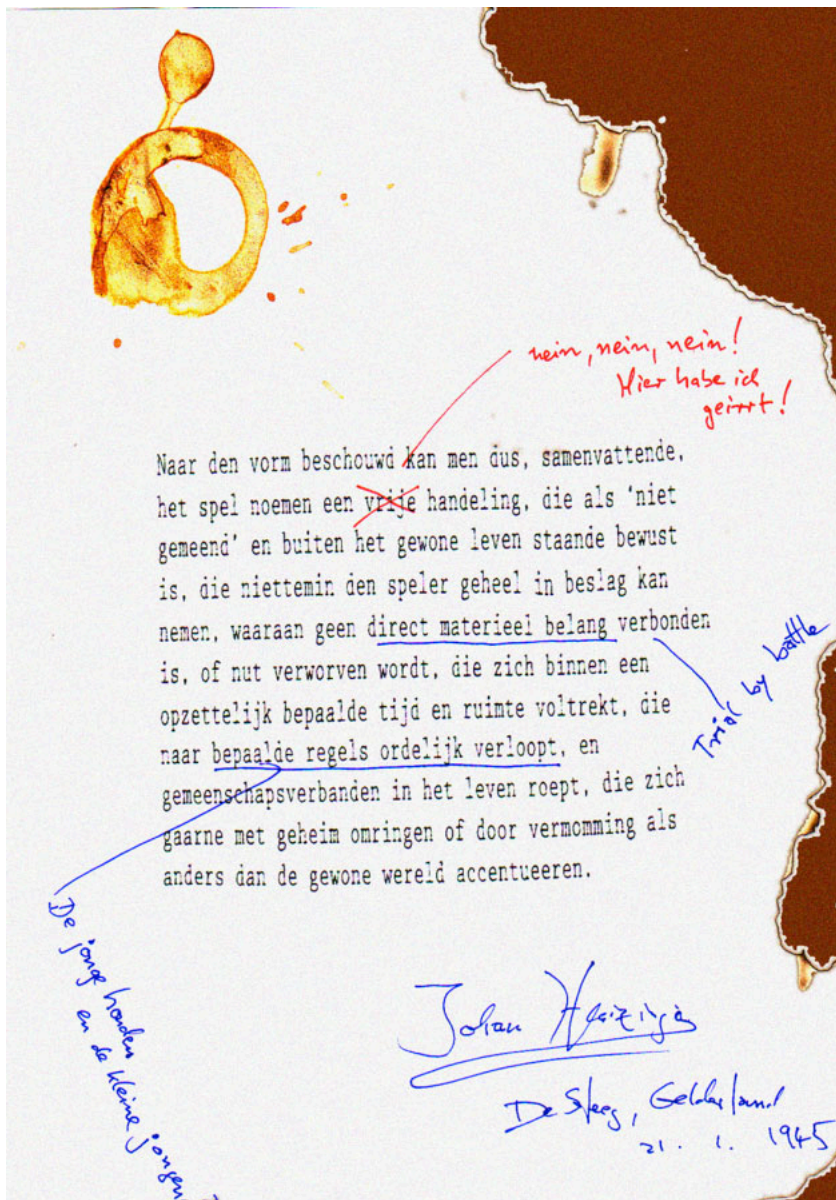 nein, nein, nein!
Hier habe ich
geirrt!
Naar den vorm beschouwd kan men dus, samenvattende,
het spel noemen een vrije handeling, die als 'niet
gemeend' en buiten het gewone leven staande bewust
is, die niettemin den speler geheel in beslag kan
nemen, waaraan geen direct materieel belang verbonden
is, of nut verworven wordt, die zich binnen een
opzettelijk bepaalde tijd en ruimte voltrekt, die
naar bepaalde regels ordelijk verloopt, en
gemeenschapsverbanden in het leven roept, die zich
gaarne met geheim omringen of door vermomming als
anders dan de gewone wereld accentueeren.
Trial by battle
De jonge honden
en de kleine jongen
Johan Huizinga
De Steeg, Gelderland
21. 1. 1945